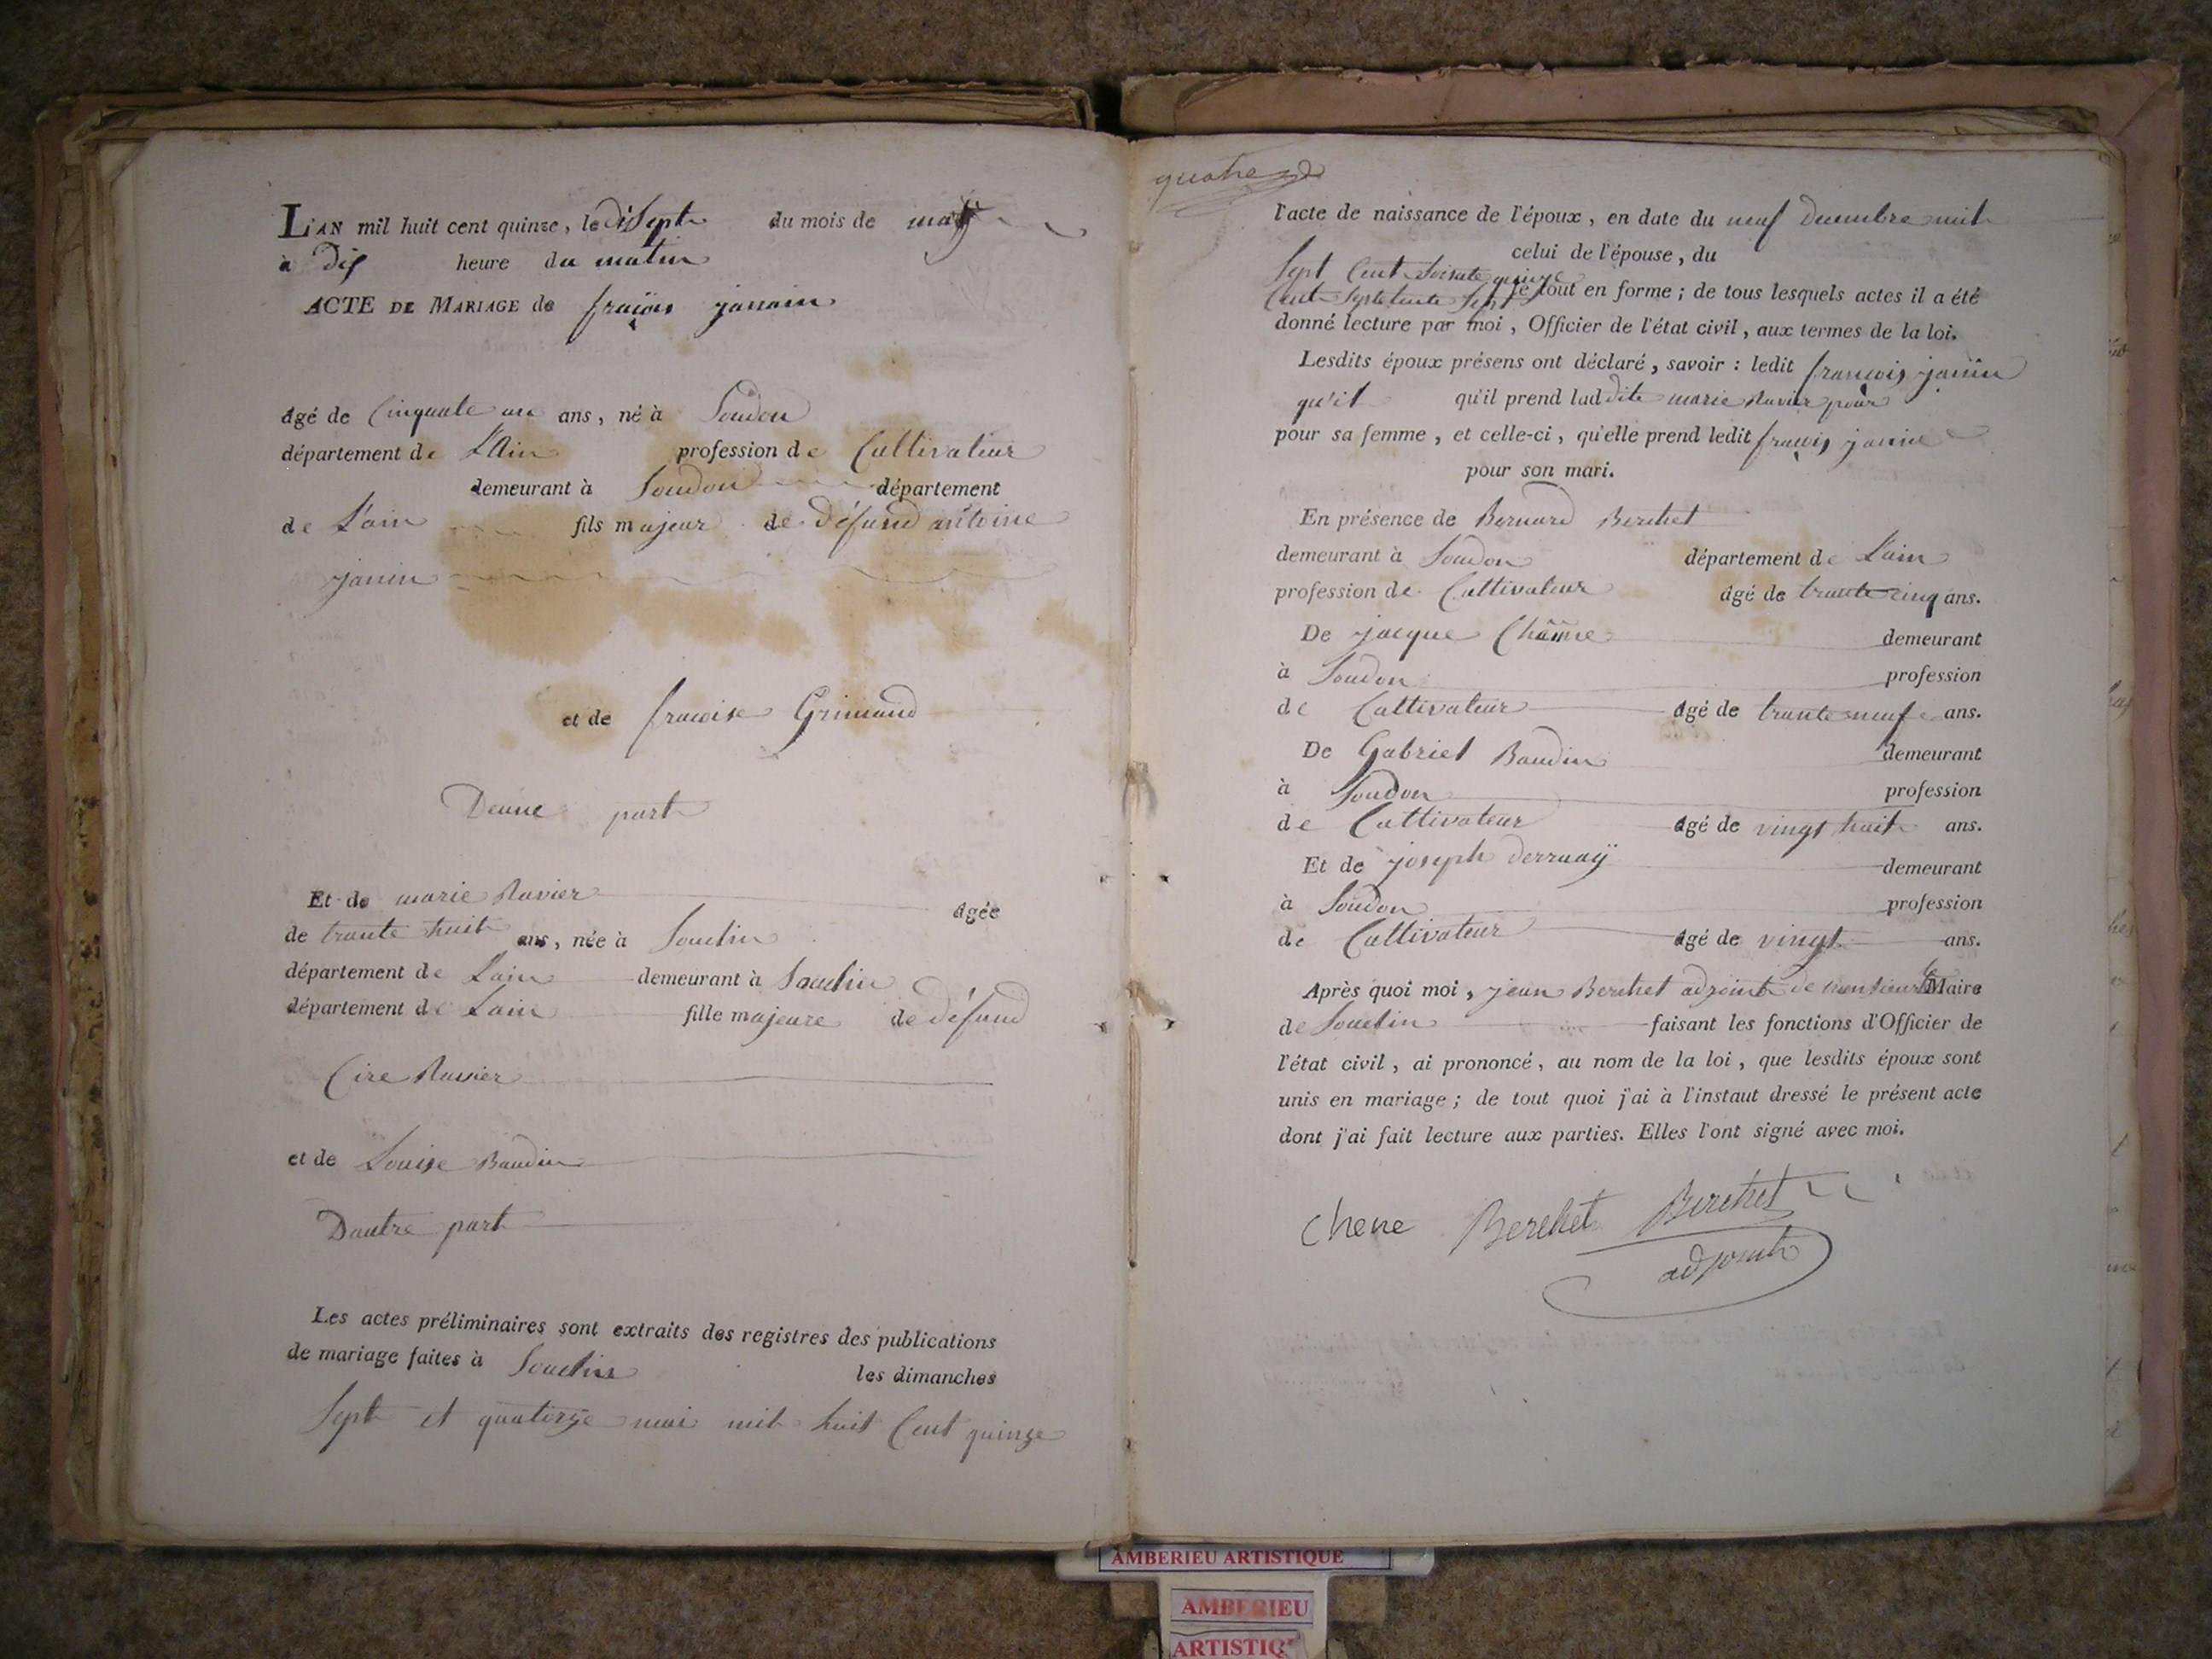 L'AN mil huit cent quinze, le diSept du mois de may
à Dix heure du matin
ACTE DE MARIAGE de fraiçois janain
âgé de Cinquante un ans, né à Soudon
département de L'Ain profession de Cultivateur
demeurant à Soudon département
de L'ain fils majeur de défund antoine
janin
et de fracoise Grimaud
Deune part
Et de marie Ravier âgée
de trante huit ans, née à Souclin
département de Lain demeurant à Souclin
département de Lain fille majeure de défund
Cire Ravier
et de Louise Baudin
Dautre part
Les actes préliminaires sont extraits des registres des publications
de mariage faites à Souclin les dimanches
Sept et quatorze mai mil huit Cent quinze
quatre
l'acte de naissance de l'époux, en date du neuf Decembre mil
celui de l'épouse, du
Sept Cent Soisate quinze
Cent Septetente Sept le tout en forme; de tous lesquels actes il a été
donné lecture par moi, Officier de l'état civil, aux termes de la loi.
Lesdits époux présens ont déclaré, savoir: ledit francois janin
qu'il qu'il prend lad dite marie Ravier pour
pour sa femme, et celle-ci, qu'elle prend ledit fracois janin
pour son mari.
En présence de Bernard Berchet
demeurant à Soudon département de L'ain
profession de Cultivateur âgé de trante cinq ans.
De jacque Chêne demeurant
à Soudon profession
de Cultivateur âgé de trante neuf ans.
De Gabriel Baudin demeurant
à Soudon profession
de Cultivateur âgé de vingt huit ans.
Et de joseph derruaÿ demeurant
à Soudon profession
de Cultivateur âgé de vingt ans.
Après quoi moi, jean Berchet adjoint de monsieur le Maire
de Souclin faisant les fonctions d'Officier de
l'état civil, ai prononcé, au nom de la loi, que lesdits époux sont
unis en mariage; de tout quoi j'ai à l'instaut dressé le présent acte
dont j'ai fait lecture aux parties. Elles l'ont signé avec moi.
Chene Berchet Berchet
adjoint
AMBERIEU ARTISTIQUE
AMBERIEU
ARTISTIQ